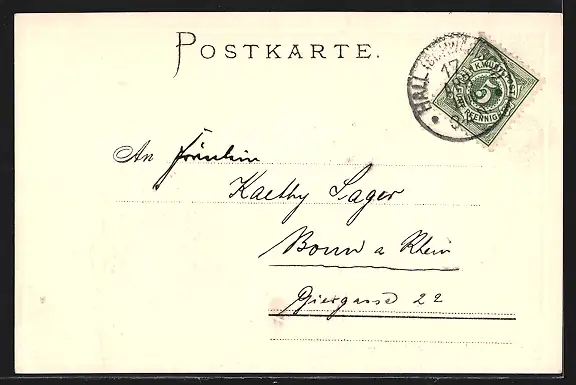 POSTKARTE.
HALL (SCHWÄB.
17
K. WÜRTT. POST
5
FÜNF PFENNIG
An Fräulein
Kaethy Lager
Bonn a Rhein
Giergasse 22